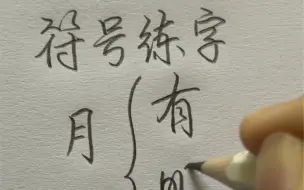 符号练字
月
有